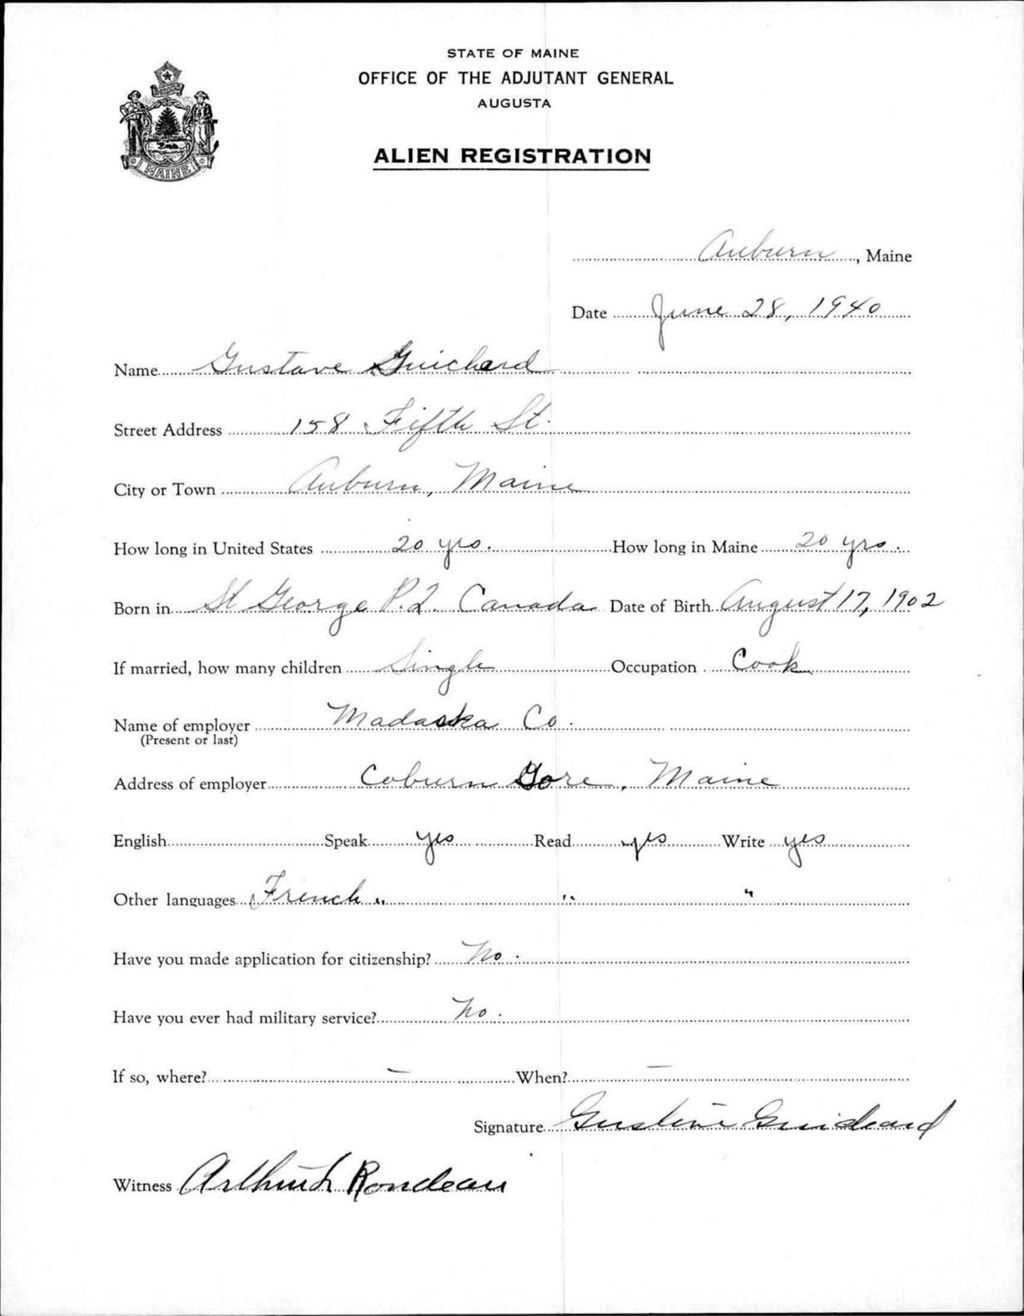 STATE OF MAINE
OFFICE OF THE ADJUTANT GENERAL
AUGUSTA
ALIEN REGISTRATION
MAINE
Auburn, Maine
Date June 28, 1940
Name Gustave Guichard
Street Address 158 Fifth St.
City or Town Auburn, Maine
How long in United States 20 yrs. How long in Maine 20 yrs.
Born in St George P.Q. Canada Date of Birth August 17, 1902
If married, how many children Single Occupation Cook
Name of employer Madaska Co.
(Present or last)
Address of employer Coburn Gore, Maine
English Speak yes Read yes Write yes
Other languages French " " "
Have you made application for citizenship? No.
Have you ever had military service? No.
If so, where? — When? —
Signature Guichard
Witness Arthur Rondeau